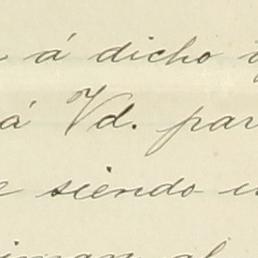 á dicho
á Vd. par
siendo
al